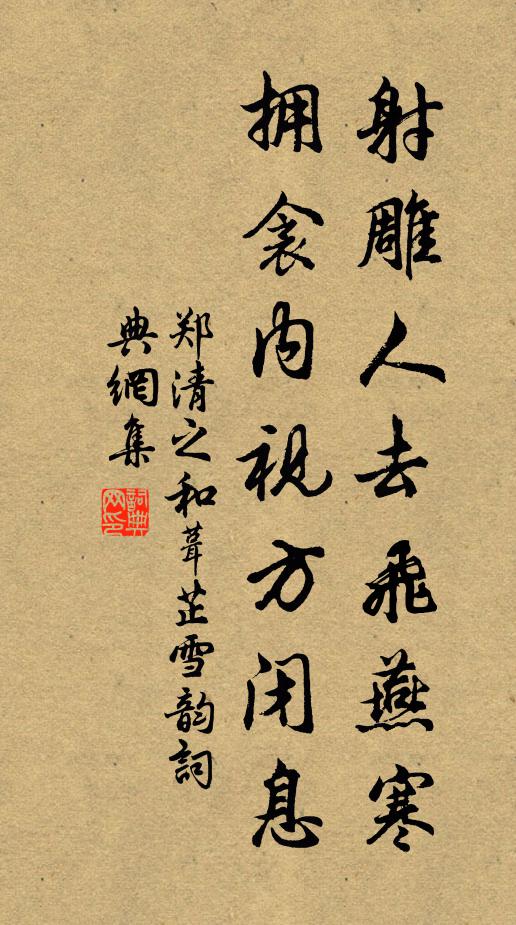 射雕人去飛燕寒
拥衾内視方闭息
郑清之和葺芷雪韵詞
典網集
詞典
网印